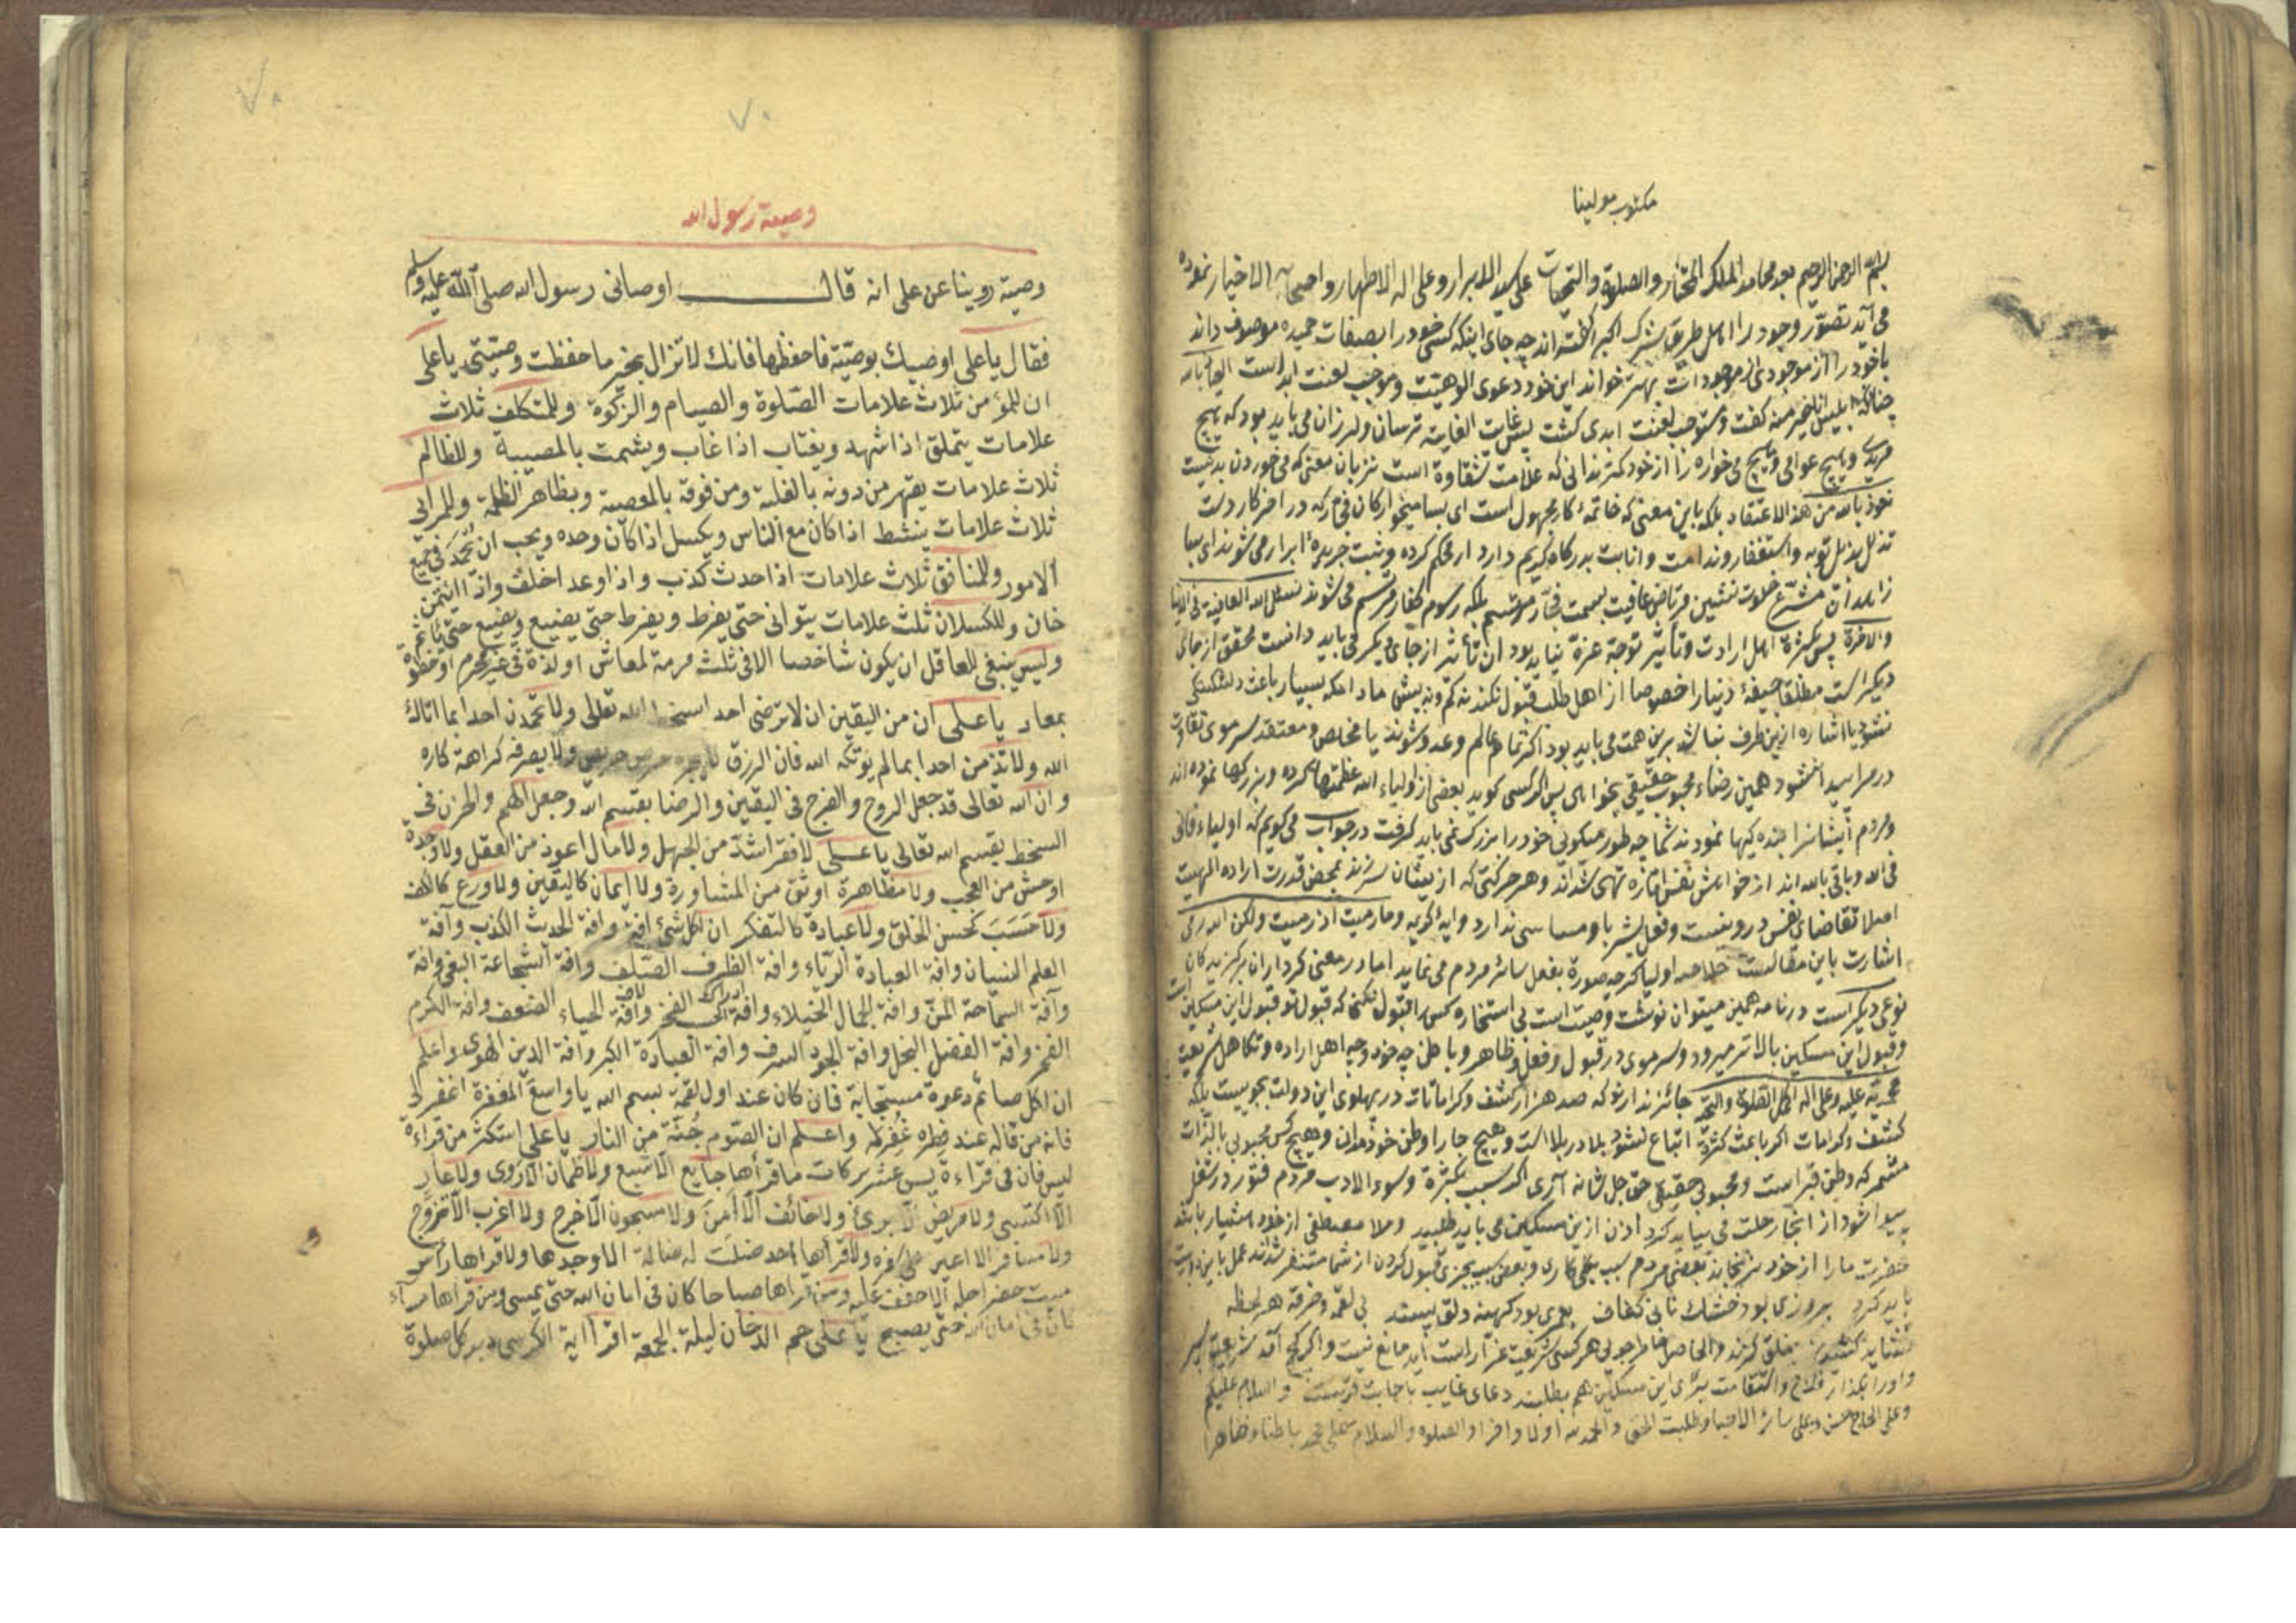 مكتوب مولينا
بسم الله الرحمن الرحيم بعد محامد الملك المختار والصلوة والتحيات على سيد الابرار وعلى اله الاطهار واصحابه الاخيار نموده
مى آيد تصور وجود را اهل طريق شرك اكبر گفته اند چه جاى اينكه كسى خود را بصفات حميده موصوف داند
يا خود را از موجودى از موجودات بهتر خواند اين خود دعوى الوهيت وموجب لعنت ابد است العياذ بالله
چنانكه ابليس انا خير منه گفت ومستوجب لعنت ابدى گشت پس غايت الغايه ترسان ولرزان مى بايد بود كه هيچ
وهيچ عوانى وهيچ مى خواره را از خود كمتر ندانى كه علامت شقاوة است نه بان معنى كه مى خوردن بد نيست
نعوذ بالله من هذا الاعتقاد بلكه باين معنى كه خاتمۀ كار مجهول است اى بسا ميخواركان كه در اخر كار دست
تذلل بذيل توبه واستغفار وندامت وانابت بدركاه كريم دارد ارمحكم كرده وثبت جريدۀ ابرار مى شوند اى بسا
زاهدان متشرع خلوت نشين مرتاض عاقبت بسمت فجار موتسم بلكه رسوم كفار مرتسم مى شوند نسئل الله العافية فى الدنيا
والاخرة پس بكثرة اهل ارادت وتأثير توجه غرة نبايد بود ان تأثير از جاى ديكر مى بايد دانست محقق از جاى
ديكر است مطلقا جيفۀ دنيا را خصوصا از اهل طلب قبول نكند نه كم ونه بيش مادامكه بسيار باعث دلشكستكى
نشود يا اشاره ازين طرف نباشد برين همت مى بايد بود اكر تمام عالم وعدو شوند يا مخلص ومعتقد سر موى تفاوت
در مراسيد نشود همين رضاء محبوب حقيقى بخواهاى پس اكر كسى كويد بعضى از اولياء الله عظمتها كرده وبزركيها نموده اند
ومردم ايشانرا بنده كيها نمودند شما چه طور ميكويى خود را بزرك نمى بايد كرفت در جواب مى كويم كه اولياء فانى
فى الله وباقى بالله اند از خواهش نفس اماره تهى شده اند وهر حركتى كه از يشان سر زند بمحض قدرت اراده الهيست
اصلا تقاضاى نفس درو نيست وفعل بشر با او مساسى ندارد وايۀ كريمه وما رميت اذ رميت ولكن الله رمى
اشارت باين مقالست خلاصه اوليا كرچه صورة بفعل سائر مردم مى نمايد اما در معنى كردار ان بركزيدكان
نوعى ديكر است در نامه همين ميتوان نوشت وصيت است بى استخاره كس را قبول نكنى كه قبول تو قبول اين مسكين است
وقبول اين مسكين بالاتر ميرود وسر موى در قبول وفعل وظاهر وباطن چه خود وچه اهل اراده وتكاهل شريعت
محمديه عليه وعلى اله اكمل الصلوة والتحية جائز ندارند كه صد هزار كشف وكرامات در پهلوى اين دولت بجويست بلكه
كشف وكرامات اكر باعث كثرة اتباع نشود بلا در بلا است وهيچ جا را وطن خود مدان وهيچ كس محبوبى بالذات
مشمر كه وطن قبر است ومحبوب حقيقى حق جل شانه آرى اكر بسبب كثرة وسوء الادب مردم فتور در شغل
پيدا شود از انجا رحلت مى بايد كرد اذن ازين مسكين مى بايد طلبيد وملا مصطفى از خود بسيار بايد
حضرت ما را از خود نرنجاند بعضى مردم بسبب وبعضى بسبب چيزى قبول كردن از شما متنفر شدند عمل باين است
بايد كرد بيروزى بود خشك نانى كفاف بموى بود كهنه دلق پسند بى لقمه وخرقه هر لحظه
نشايد كشيدن بخلق كزند والحاصل خاطرجويى هر كس شريعت غرا راست ايد مانع نيست واكر كج آمد شريعت كير
واورا بكذار فلاح واستقامت براى اين مسكين هم بطلبند دعاى غايب باجابت قريبست والسلام عليكم
وعلى الحاج حسن وعلى سائر الاحبا وطلبت الحق والحمد لله اولا واخرا والصلوة والسلام على محمد باطنا وظاهرا
٧٠
٧٠
وصية رسول الله
وصية روينا عن على انه قال اوصانى رسول الله صلى الله عليه وسلم
فقال يا على اوصيك بوصية فاحفظها فانك لا تزال بخير ما حفظت وصيتى يا على
ان للمؤمن ثلاث علامات الصلوة والصيام والزكوة وللمتكلف ثلاث
علامات يتملق اذا شهد ويغتاب اذا غاب ويشمت بالمصيبة وللظالم
ثلاث علامات يقهر من دونه بالغلبة ومن فوقه بالمعصية ويظاهر الظلمة وللمرائى
ثلاث علامات ينشط اذا كان مع الناس ويكسل اذا كان وحده ويحب ان يحمد فى جميع
الامور وللمنافق ثلاث علامات اذا حدث كذب واذا وعد اخلف واذا ائتمن
خان وللكسلان ثلث علامات يتوانى حتى يفرط ويفرط حتى يضيع ويضيع حتى يأثم
وليس ينبغى للعاقل ان يكون شاخصا الا فى ثلث مرمة لمعاش او لذة فى غير محرم او خطوة
بمعاد يا على ان من اليقين ان لا ترضى احدا بسخط الله تعالى ولا تحمدن احدا بما اتاك
الله ولا تذمن احدا بما لم يؤتكه الله فان الرزق لا يجره حرص حريص ولا يصرفه كراهة كاره
وان الله تعالى قد جعل الروح والفرج فى اليقين والرضا بقسم الله وجعل الهم والحزن فى
السخط بقسم الله تعالى يا على لا فقر اشد من الجهل ولا مال اعوذ من العقل ولا وحدة
اوحش من العجب ولا مظاهرة اوثق من المشاورة ولا ايمان كاليقين ولا ورع كالكف
ولا حسب كحسن الخلق ولا عبادة كالتفكر ان لكل شئ افة وافة الحديث الكذب وآفة
العلم النسيان وافة العبادة الرياء وافة الظرف الصلف وافة الشجاعة البغى وافة
وآفة السماحة المن وافة الجمال الخيلاء وافة الحسب الفخر وافة الحياء الضعف وافة الكرم
الفخر وافة الفضل البخل وافة الجود السرف وافة العبادة الكبر وافة الدين الهوى واعلم
ان لكل صائم دعوة مستجابة فان كان عند اول لقمة بسم الله يا واسع المغفرة اغفر لى
فانه من قاله عند فطره غفر له واعلم ان الصوم جنة من النار يا على استكثر من قراءة
يس فان فى قراءة يس عشر بركات ما قرأها جايع الا شبع ولا ظمآن الا روى ولا عار
الا اكتسى ولا مريض الا برئ ولا خائف الا أمن ولا مسجون الا خرج ولا اعزب الا تزوج
ولا مسافر الا اعين على سفره ولا قرأها احد ضلت له ضالة الا وجدها ولا قرأها رأس
ميت حضر اجله الا خفف عليه ومن قرأها صباحا كان فى امان الله حتى يمسى ومن قرأها مساء
كان فى امان الله حتى يصبح يا على حم الدخان ليلة الجمعة اقرأ اية الكرسى دبر كل صلوة